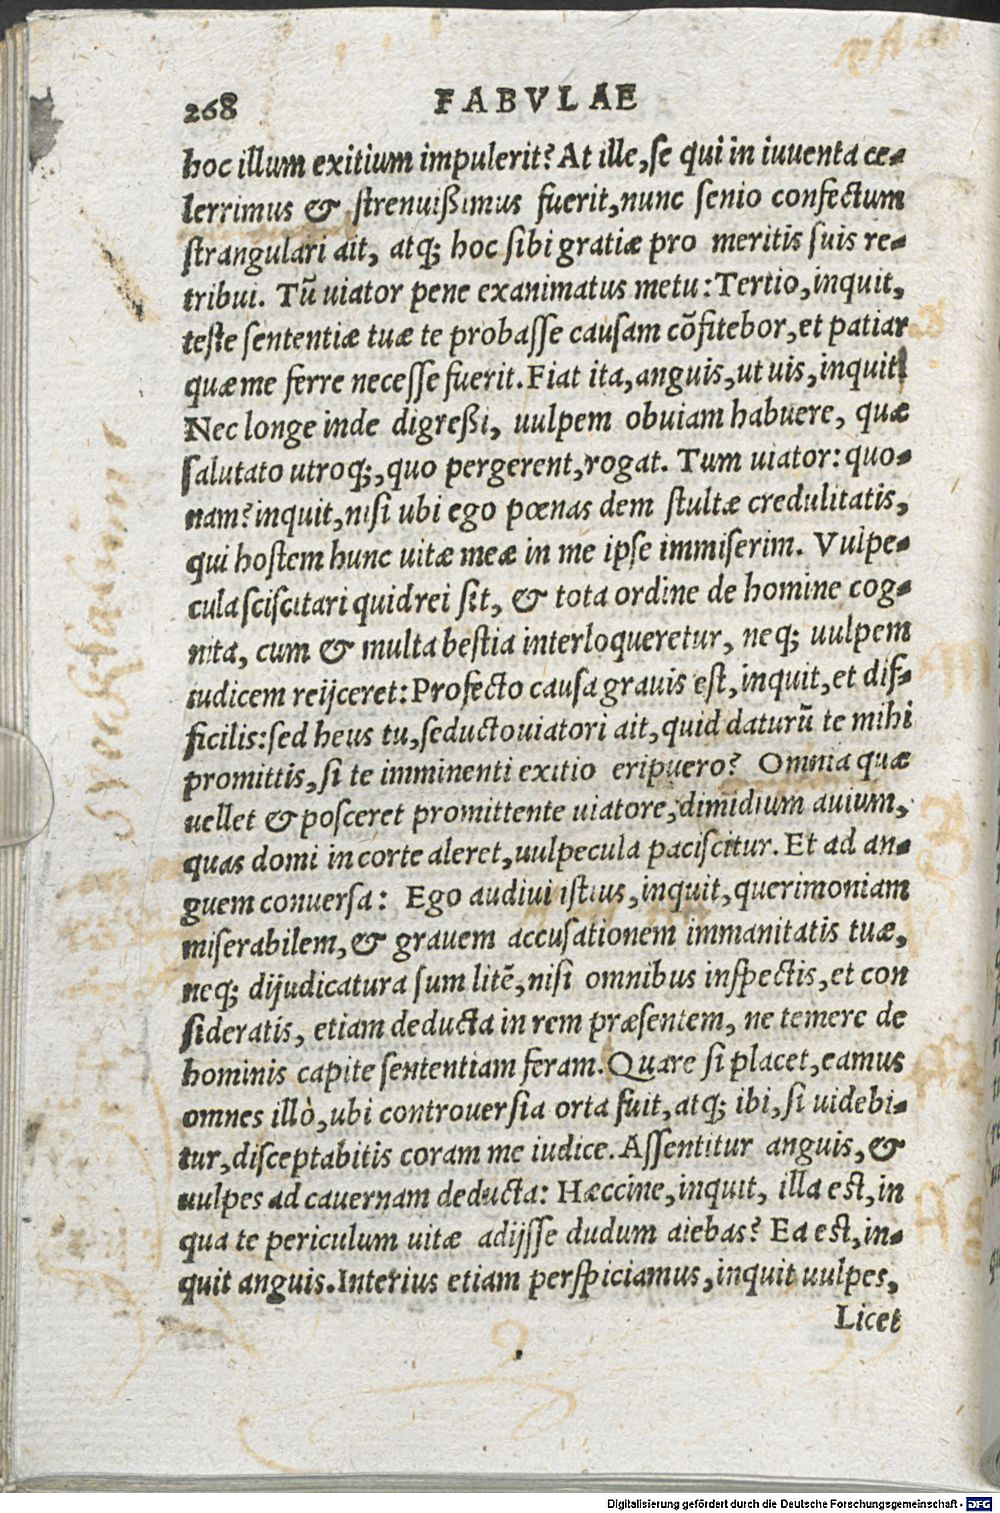 268 FABVLAE
hoc illum exitium impulerit? At ille, se qui in iuuenta ce-
lerrimus & strenuißimus fuerit, nunc senio confectum
strangulari ait, atq; hoc sibi gratiæ pro meritis suis re-
tribui. Tũ uiator pene exanimatus metu: Tertio, inquit,
teste sententiæ tuæ te probasse causam cõfitebor, et patiar
quæ me ferre necesse fuerit. Fiat ita, anguis, ut uis, inquit
Nec longe inde digreßi, uulpem obuiam habuere, quæ
salutato utroq;, quo pergerent, rogat. Tum uiator: quo-
nam? inquit, nisi ubi ego pœnas dem stultæ credulitatis,
qui hostem hunc uitæ meæ in me ipse immiserim. Vulpe-
cula sciscitari quid rei sit, & tota ordine de homine cog-
nita, cum & multa bestia interloqueretur, neq; uulpem
iudicem reijceret: Profecto causa grauis est, inquit, et dif-
ficilis: sed heus tu, seducto uiatori ait, quid daturũ te mihi
promittis, si te imminenti exitio eripuero? Omnia quæ
uellet & posceret promittente uiatore, dimidium auium,
quas domi in corte aleret, uulpecula paciscitur. Et ad an-
guem conuersa: Ego audiui istius, inquit, querimoniam
miserabilem, & grauem accusationem immanitatis tuæ,
neq; dijudicatura sum litẽ, nisi omnibus inspectis, et con
sideratis, etiam deducta in rem præsentem, ne temere de
hominis capite sententiam feram. Quare si placet, eamus
omnes illò, ubi controuersia orta fuit, atq; ibi, si uidebi-
tur, disceptabitis coram me iudice. Assentitur anguis, &
uulpes ad cauernam deducta: Hæccine, inquit, illa est, in
qua te periculum uitæ adijsse dudum aiebas? Ea est, in-
quit anguis. Interius etiam perspiciamus, inquit uulpes,
Licet
Digitalisierung gefördert durch die Deutsche Forschungsgemeinschaft - DFG